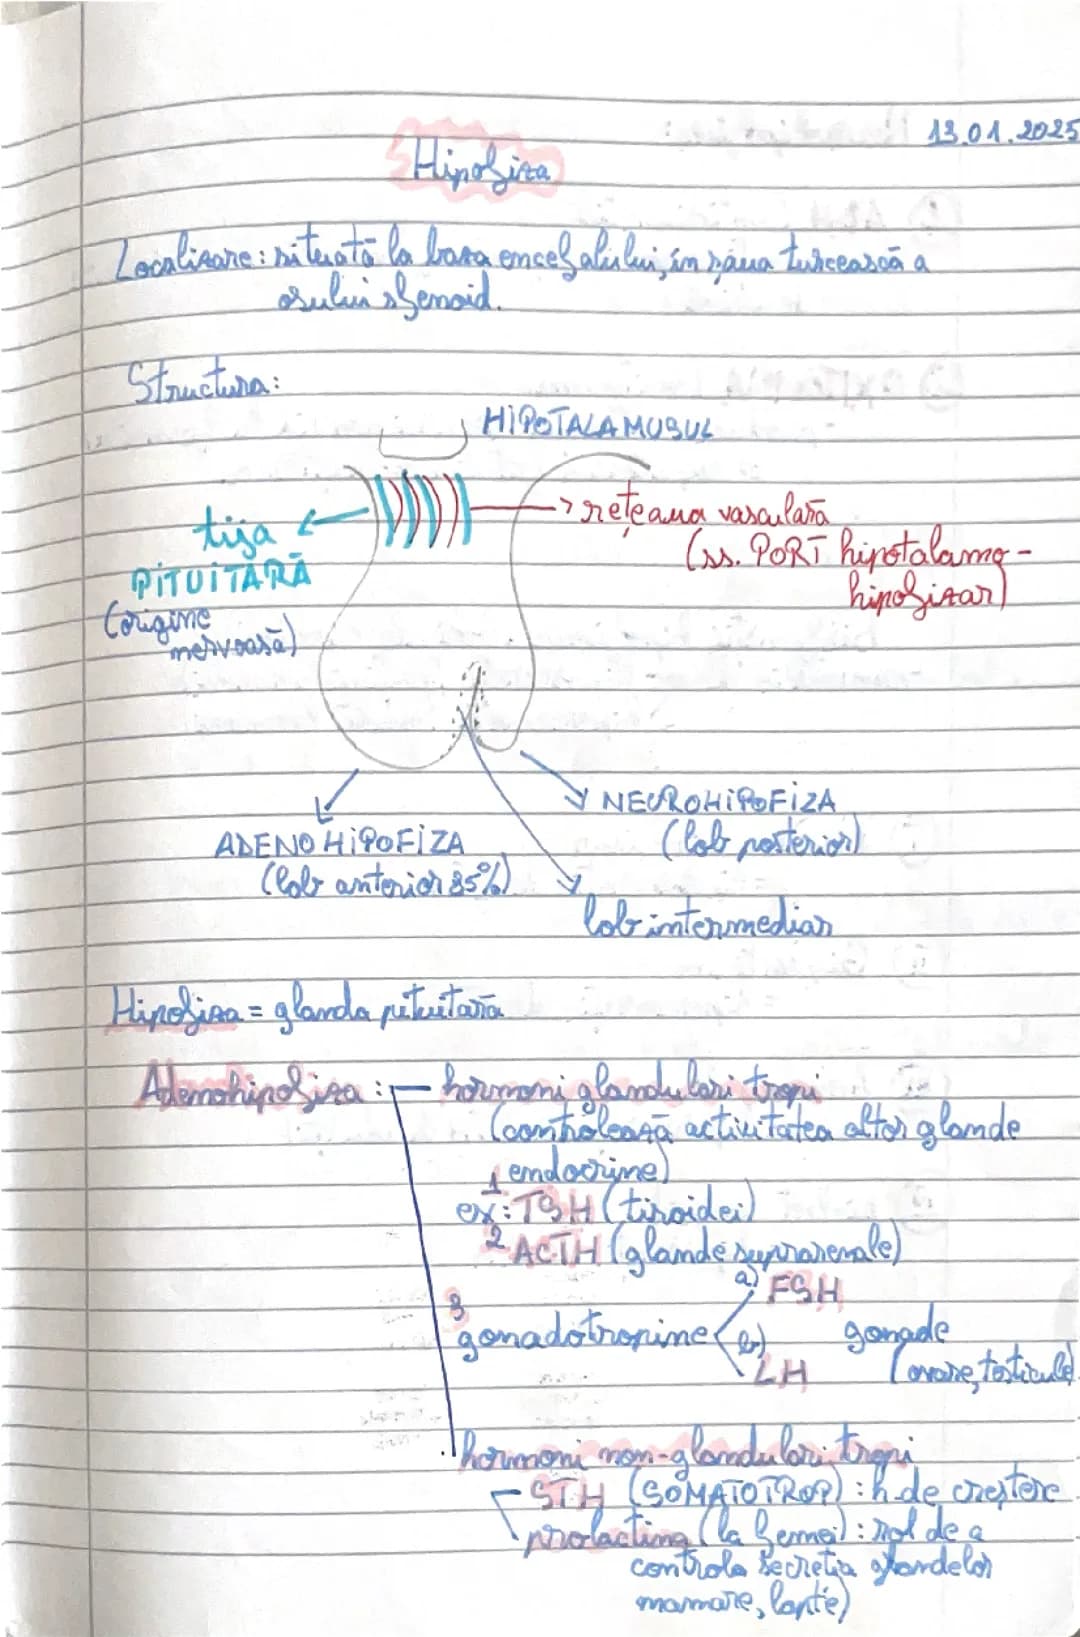 13.01.2025
Hipofiza
Localizare: situată la baza encefalului, în șaua turcească a
osului sfenoid.
Structura:
HIPOTALAMUSUL
tija
PITUITARĂ
(origine
nervoasă)
rețeaua vasculară
(ss. PORT hipotalamo-
hipofizar)
ADENOHIPOFIZA
(lob anterior 85%)
NEUROHIPOFIZA
(lob posterior)
lob intermediar
Hipofiza = glanda pituitară
Adenohipofiza: hormoni glandulari tropi
(controlează activitatea altor glande
endocrine)
ex: 1 TSH (tiroidei)
2 ACTH (glande suprarenale)
a) FSH
3 gonadotropine b) gonade
LH (ovare, testicule)
hormoni non-glandulari tropi
STH (SOMATOTROP) : h. de creștere
prolactina (la femei) : rol de a
controla secreția glandelor
mamare, lapte)